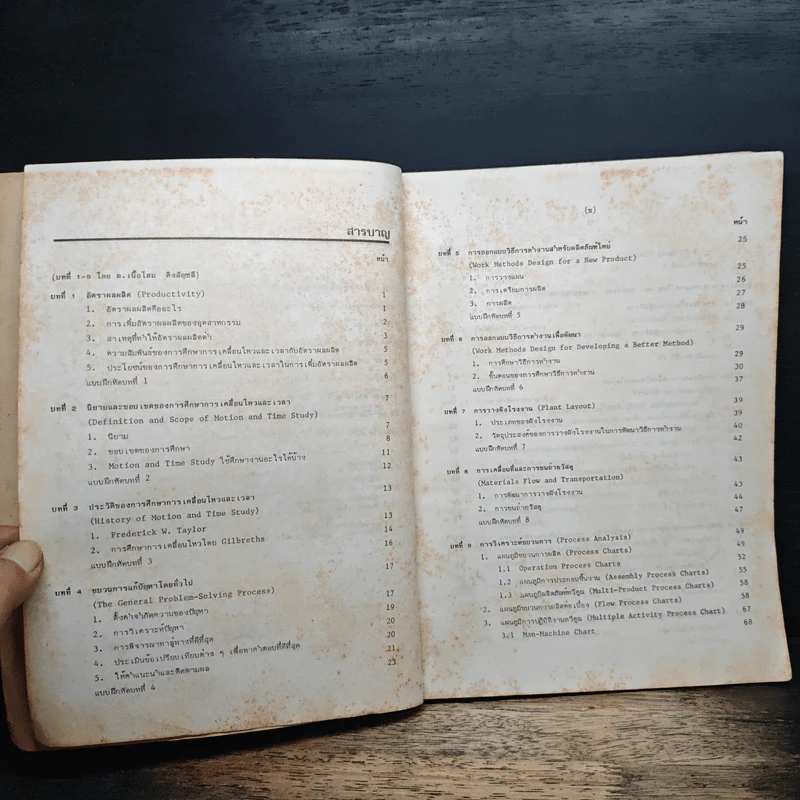 สารบาญ
หน้า
(บทที่ 1-9 โดย อ.เนื้อโสม ติงสัญชลี)
บทที่ 1 อัตราผลผลิต (Productivity) 1
1. อัตราผลผลิตคืออะไร 1
2. การเพิ่มอัตราผลผลิตของอุตสาหกรรม 2
3. สาเหตุที่ทำให้อัตราผลผลิตต่ำ 3
4. ความสัมพันธ์ของการศึกษาการเคลื่อนไหวและเวลากับอัตราผลผลิต 5
5. ประโยชน์ของการศึกษาการเคลื่อนไหวและเวลาในการเพิ่มอัตราผลผลิต 5
แบบฝึกหัดบทที่ 1 6
บทที่ 2 นิยามและขอบเขตของการศึกษาการเคลื่อนไหวและเวลา 7
(Definition and Scope of Motion and Time Study)
1. นิยาม 7
2. ขอบเขตของการศึกษา 8
3. Motion and Time Study ใช้ศึกษางานอะไรได้บ้าง 11
แบบฝึกหัดบทที่ 2 12
บทที่ 3 ประวัติของการศึกษาการเคลื่อนไหวและเวลา 13
(History of Motion and Time Study)
1. Frederick W. Taylor 13
2. การศึกษาการเคลื่อนไหวโดย Gilbreths 14
แบบฝึกหัดบทที่ 3 16
บทที่ 4 ขบวนการแก้ปัญหาโดยทั่วไป 17
(The General Problem-Solving Process)
1. ตั้งคำจำกัดความของปัญหา 17
2. การวิเคราะห์ปัญหา 19
3. การพิจารณาหาลู่ทางที่ดีที่สุด 20
4. ประเมินข้อเปรียบเทียบต่าง ๆ เพื่อหาคำตอบที่ดีที่สุด 20
5. ให้คำแนะนำและติดตามผล 21
แบบฝึกหัดบทที่ 4 23
(ข)
หน้า
บทที่ 5 การออกแบบวิธีการทำงานสำหรับผลิตภัณฑ์ใหม่ 25
(Work Methods Design for a New Product)
1. การวางแผน 25
2. การเตรียมการผลิต 26
3. การผลิต 27
แบบฝึกหัดบทที่ 5 28
บทที่ 6 การออกแบบวิธีการทำงานเพื่อพัฒนา 29
(Work Methods Design for Developing a Better Method)
1. การศึกษาวิธีการทำงาน 29
2. ขั้นตอนของการศึกษาวิธีการทำงาน 30
แบบฝึกหัดบทที่ 6 37
บทที่ 7 การวางผังโรงงาน (Plant Layout) 39
1. ประเภทของผังโรงงาน 39
2. วัตถุประสงค์ของการวางผังโรงงานในการพัฒนาวิธีการทำงาน 40
แบบฝึกหัดบทที่ 7 42
บทที่ 8 การเคลื่อนที่และการขนถ่ายวัสดุ 43
(Materials Flow and Transportation)
1. การพัฒนาการวางผังโรงงาน 43
2. การขนถ่ายวัสดุ 44
แบบฝึกหัดบทที่ 8 47
บทที่ 9 การวิเคราะห์ขบวนการ (Process Analysis) 49
1. แผนภูมิขบวนการผลิต (Process Charts) 49
1.1 Operation Process Charts 52
1.2 แผนภูมิการประกอบชิ้นงาน (Assembly Process Charts) 55
1.3 แผนภูมิผลิตภัณฑ์ทวีคูณ (Multi-Product Process Charts) 58
2. แผนภูมิขบวนการผลิตต่อเนื่อง (Flow Process Charts) 58
3. แผนภูมิการปฏิบัติงานทวีคูณ (Multiple Activity Process Chart) 67
3.1 Man-Machine Chart 68